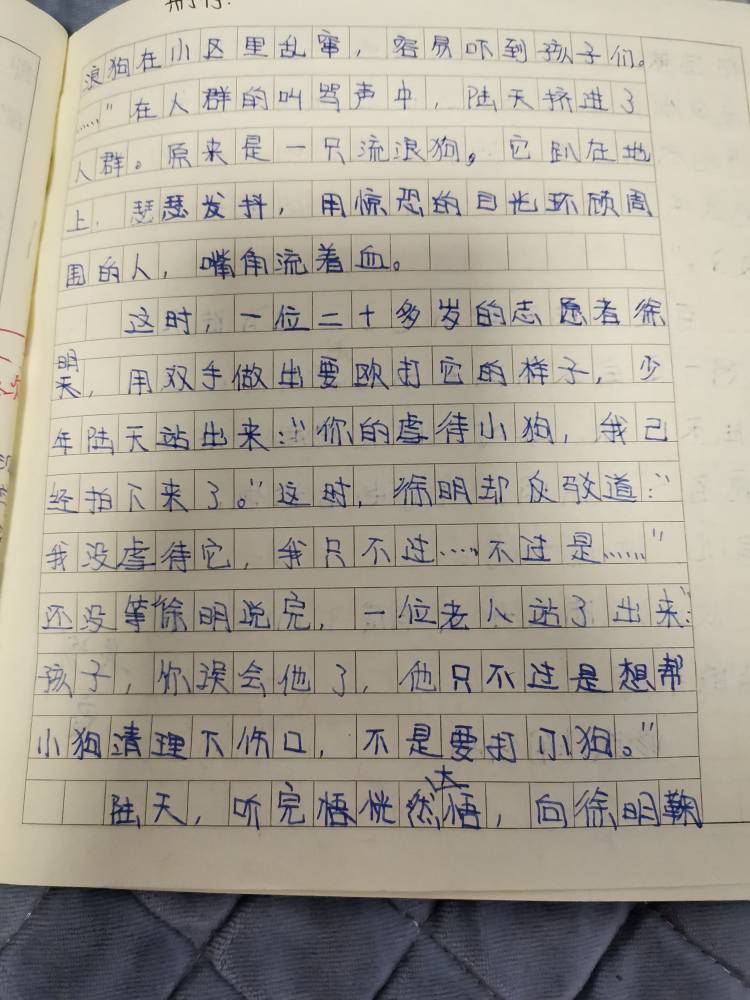 浪狗在小区里乱窜，容易吓到孩子们。
……"在人群的叫骂声中，陆天挤进了
人群。原来是一只流浪狗，它趴在地
上，瑟瑟发抖，用惊恐的目光环顾周
围的人，嘴角流着血。
这时，一位二十多岁的志愿者徐
明天，用双手做出要欧打它的样子，少
年陆天站出来："你的虐待小狗，我已
经拍下来了。"这时，徐明却反驳道："
我没虐待它，我只不过……不过是……"
还没等徐明说完，一位老人站了出来："
孩子，你误会他了，他只不过是想帮
小狗清理下伤口，不是要打小狗。"
陆天，听完悟恍然大悟，向徐明鞠